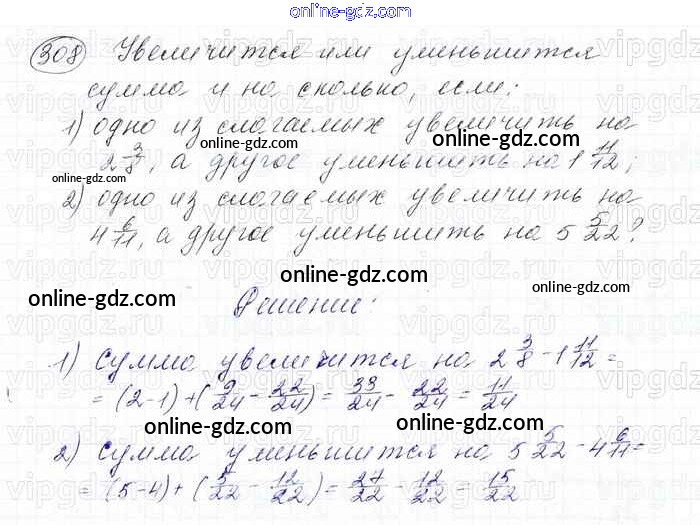 online-gdz.com
308 Увеличится или уменьшится
сумма и на сколько, если:
1) одно из слагаемых увеличить на
2 3/8, а другое уменьшить на 1 11/12;
2) одно из слагаемых увеличить на
4 6/11, а другое уменьшить на 5 5/22?
Решение:
1) Сумма увеличится на 2 3/8 - 1 11/12 =
= (2-1) + (9/24 - 22/24) = 33/24 - 22/24 = 11/24
2) Сумма уменьшится на 5 5/22 - 4 6/11 =
= (5-4) + (5/22 - 12/22) = 27/22 - 12/22 = 15/22
online-gdz.com
online-gdz.com
online-gdz.com
online-gdz.com
online-gdz.com
online-gdz.com
online-gdz.com
online-gdz.com